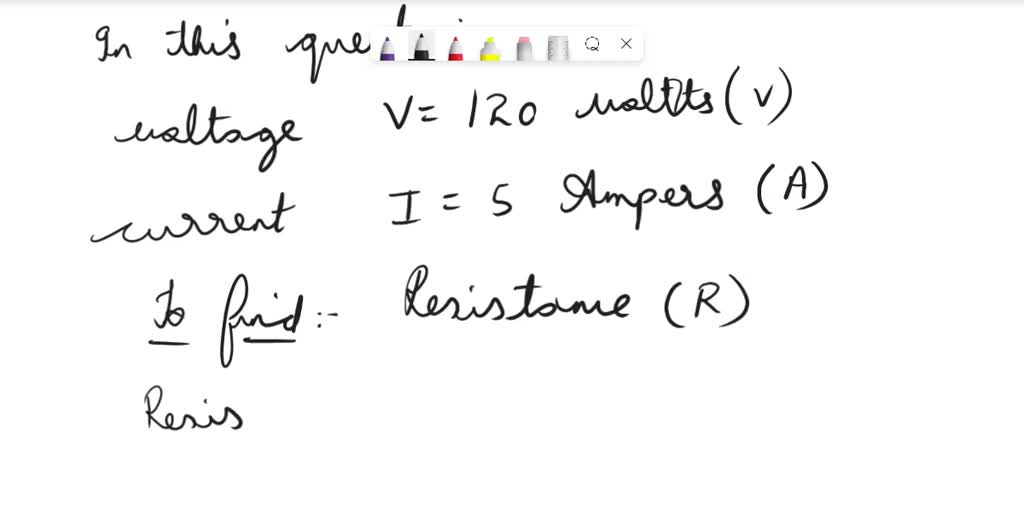 In this
voltage V = 120 voltts (V)
current I = 5 Ampers (A)
To find :- Resistance (R)
Resis